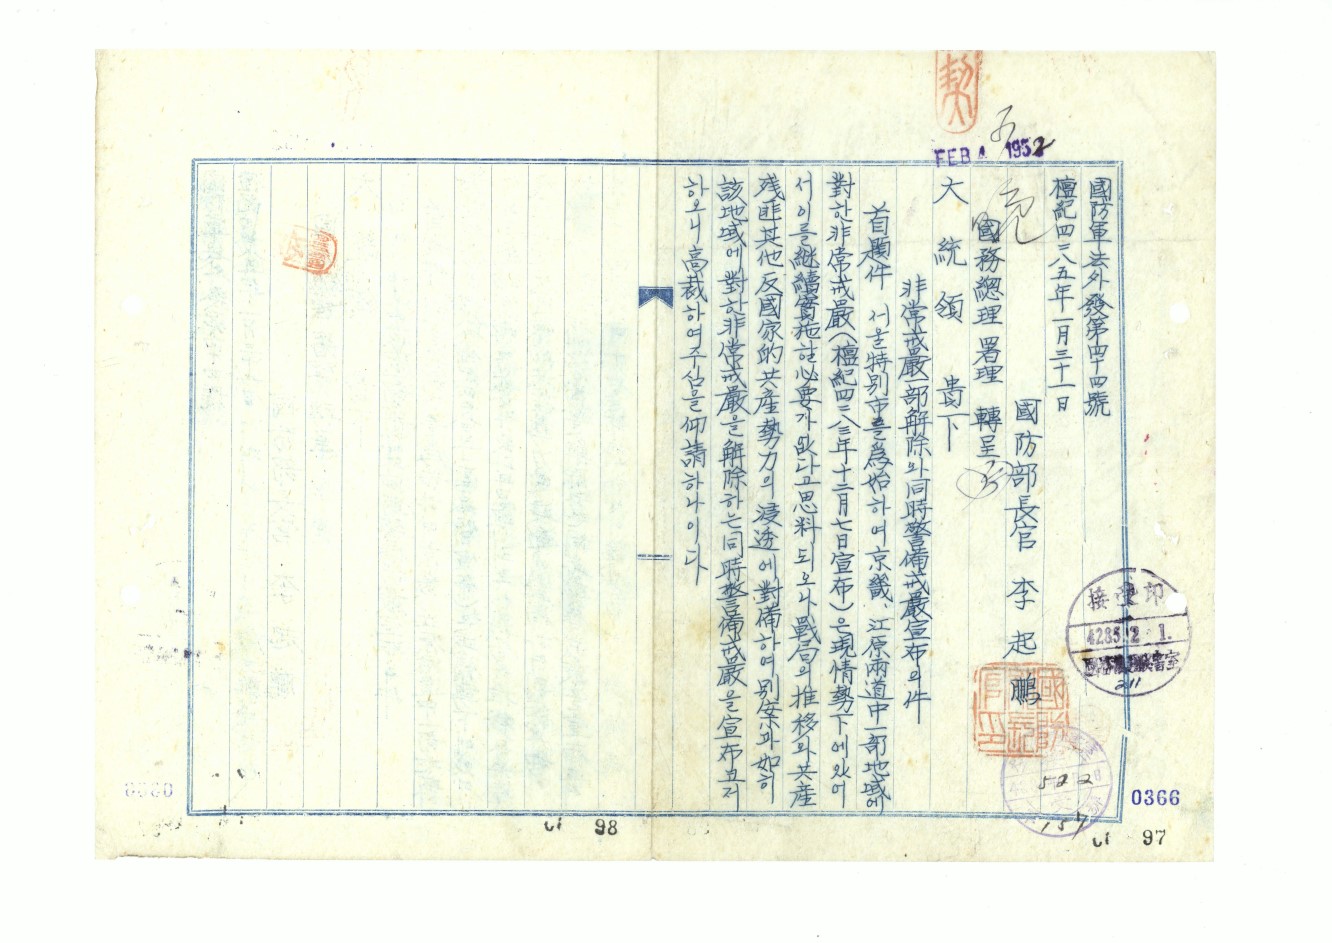 國防軍法外發第四十四號
檀紀四二八五年一月三十一日
國防部長官 李起鵬
國務總理署理 轉呈
大統領 貴下
非常戒嚴一部解除와同時警備戒嚴宣布의件
首題件 서울特別市를爲始하여京畿、江原兩道中一部地域에
對한非常戒嚴(檀紀四二八三年十二月七日宣布)은現情勢下에있어
서이를継續實施할必要가없다고思料되오나戰局의推移와共産
残匪其他反國家的共産勢力의浸透에對備하여別案과如히
該地域에對한非常戒嚴을解除하는同時警備戒嚴을宣布코저
하오니高裁하여주심을仰請하나이다
FEB 4 1952
接受印
4285. 2. 1.
211
522
157
0366
97
98